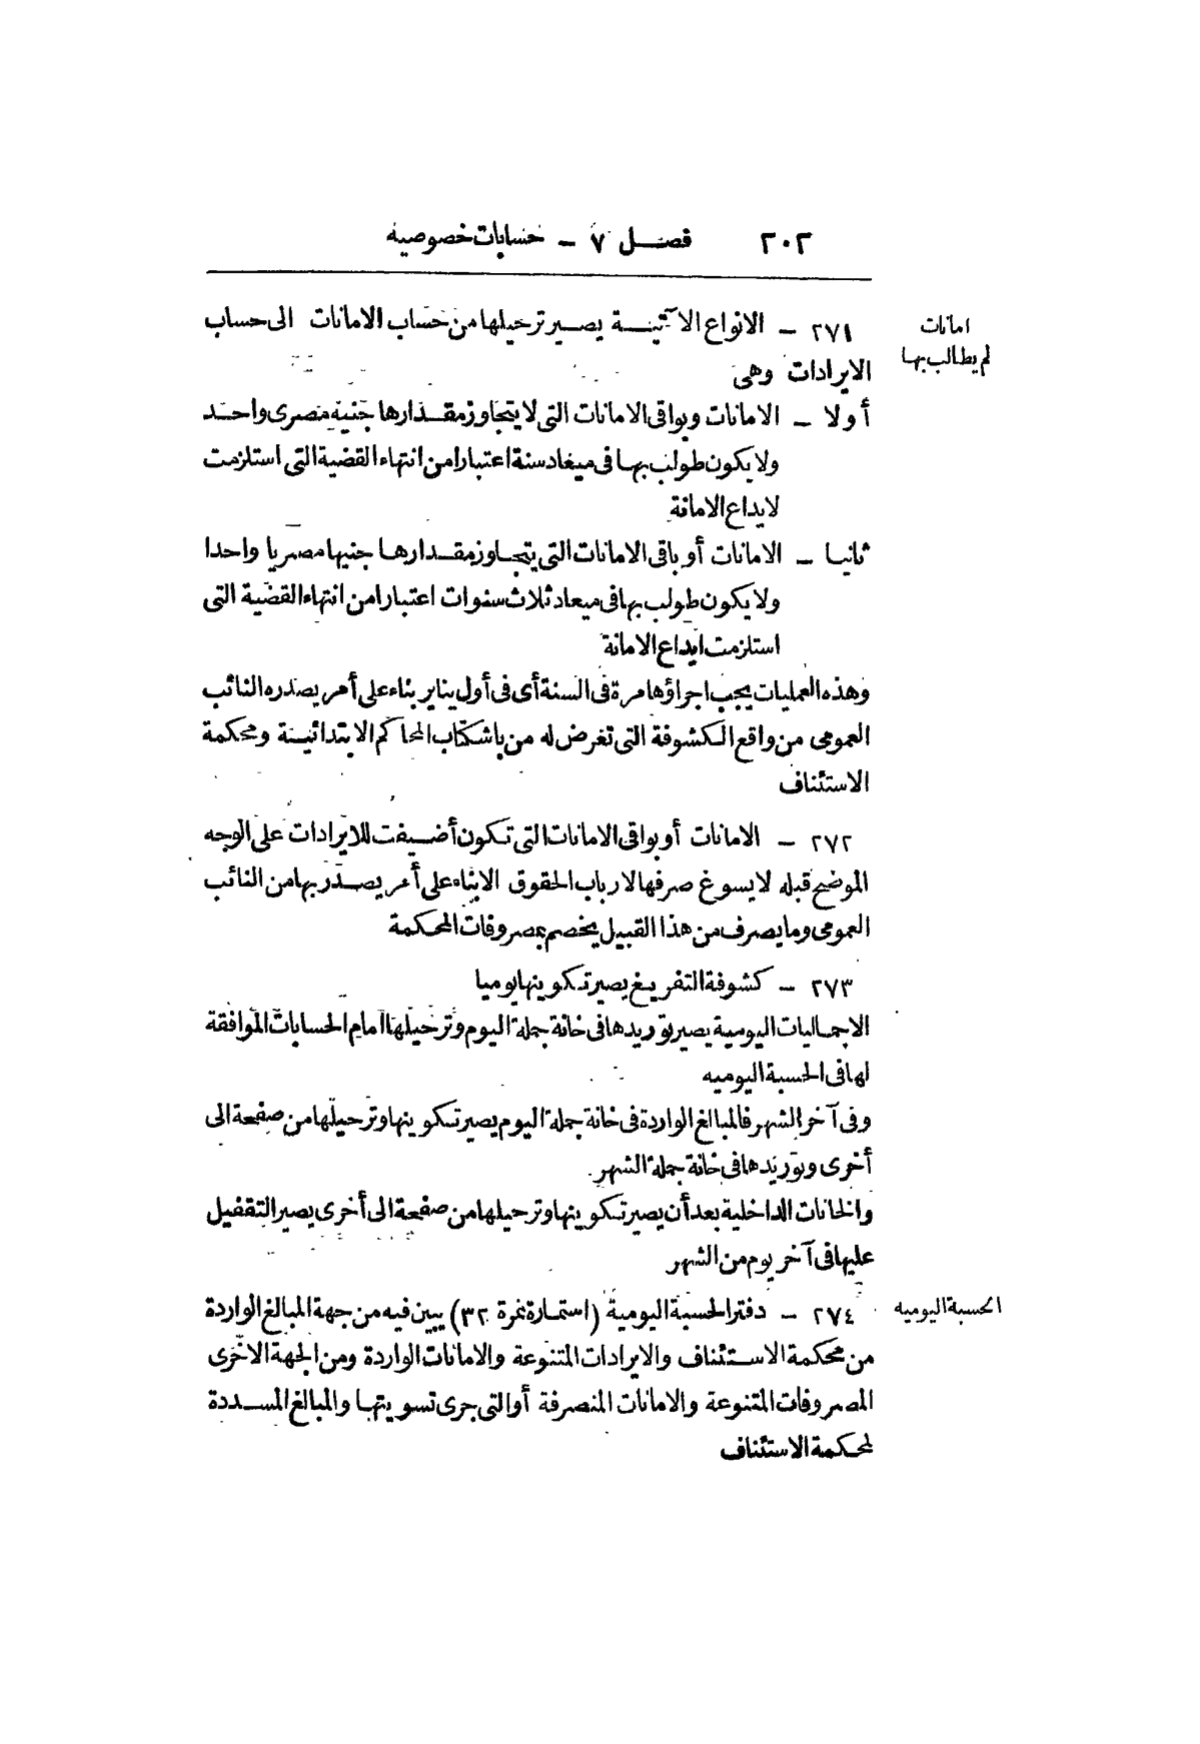 ٢٠٢ فصل ٧ ـ حسابات خصوصيه
امانات
لم يطالب بها
٢٧١ ـ الانواع الآتية يصير ترحيلها من حساب الامانات الى حساب
الايرادات وهى
أولا ـ الامانات وبواقى الامانات التى لا يتجاوز مقدارها جنيه مصرى واحد
ولا يكون طولب بها فى ميعاد سنة اعتبارا من انتهاء القضية التى استلزمت
لايداع الامانة
ثانيا ـ الامانات أو باقى الامانات التى يتجاوز مقدارها جنيها مصريا واحدا
ولا يكون طولب بها فى ميعاد ثلاث سنوات اعتبارا من انتهاء القضية التى
استلزمت ايداع الامانة
وهذه العمليات يجب اجراؤها مرة فى السنة أى فى أول يناير بناء على أمر يصدره النائب
العمومى من واقع الكشوفة التى تعرض له من باشكتاب المحاكم الابتدائية ومحكمة
الاستئناف
٢٧٢ ـ الامانات أو بواقى الامانات التى تكون أضيفت للايرادات على الوجه
الموضح قبله لا يسوغ صرفها لارباب الحقوق الا بناء على أمر يصدر بها من النائب
العمومى وما يصرف من هذا القبيل يخصم بمصروفات المحكمة
٢٧٣ ـ كشوفة التفريغ يصير تكوينها يوميا
الاجماليات اليومية يصير توريدها فى خانة جملة اليوم وترحيلها امام الحسابات الموافقة
لها فى الحسبة اليوميه
وفى آخر الشهر فالمبالغ الواردة فى خانة جملة اليوم يصير تكوينها وترحيلها من صفحة الى
أخرى وتوريدها فى خانة جملة الشهر
والخانات الداخلية بعد أن يصير تكوينها وترحيلها من صفحة الى أخرى يصير التقفيل
عليها فى آخر يوم من الشهر
الحسبة اليوميه
٢٧٤ ـ دفتر الحسبة اليومية (استمارة نمرة ٣٢) يبين فيه من جهة المبالغ الواردة
من محكمة الاستئناف والايرادات المتنوعة والامانات الواردة ومن الجهة الاخرى
المصروفات المتنوعة والامانات المنصرفة أو التى جرى تسويتها والمبالغ المسددة
لمحكمة الاستئناف